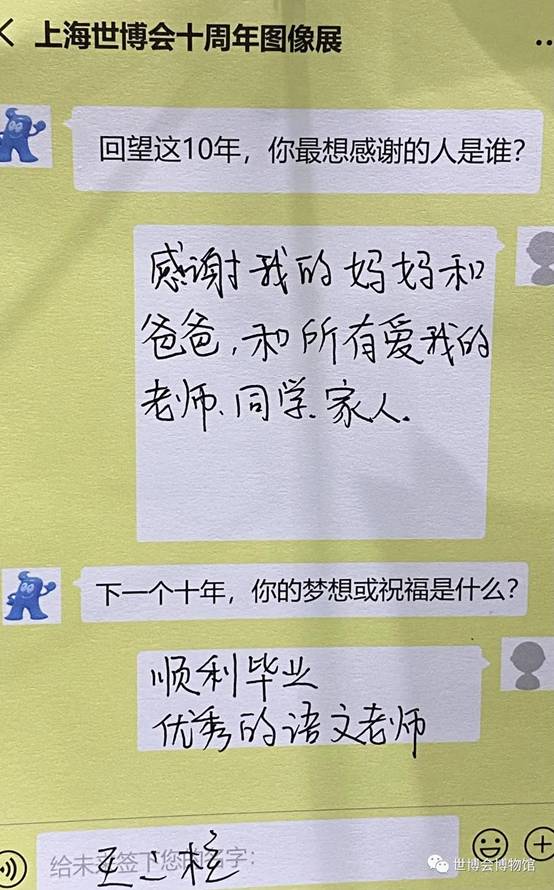 上海世博会十周年图像展
回望这10年，你最想感谢的人是谁？
感谢我的妈妈和
爸爸，和所有爱我的
老师、同学、家人.
下一个十年，你的梦想或祝福是什么？
顺利毕业
优秀的语文老师
给未来签下您的名字：
世博会博物馆